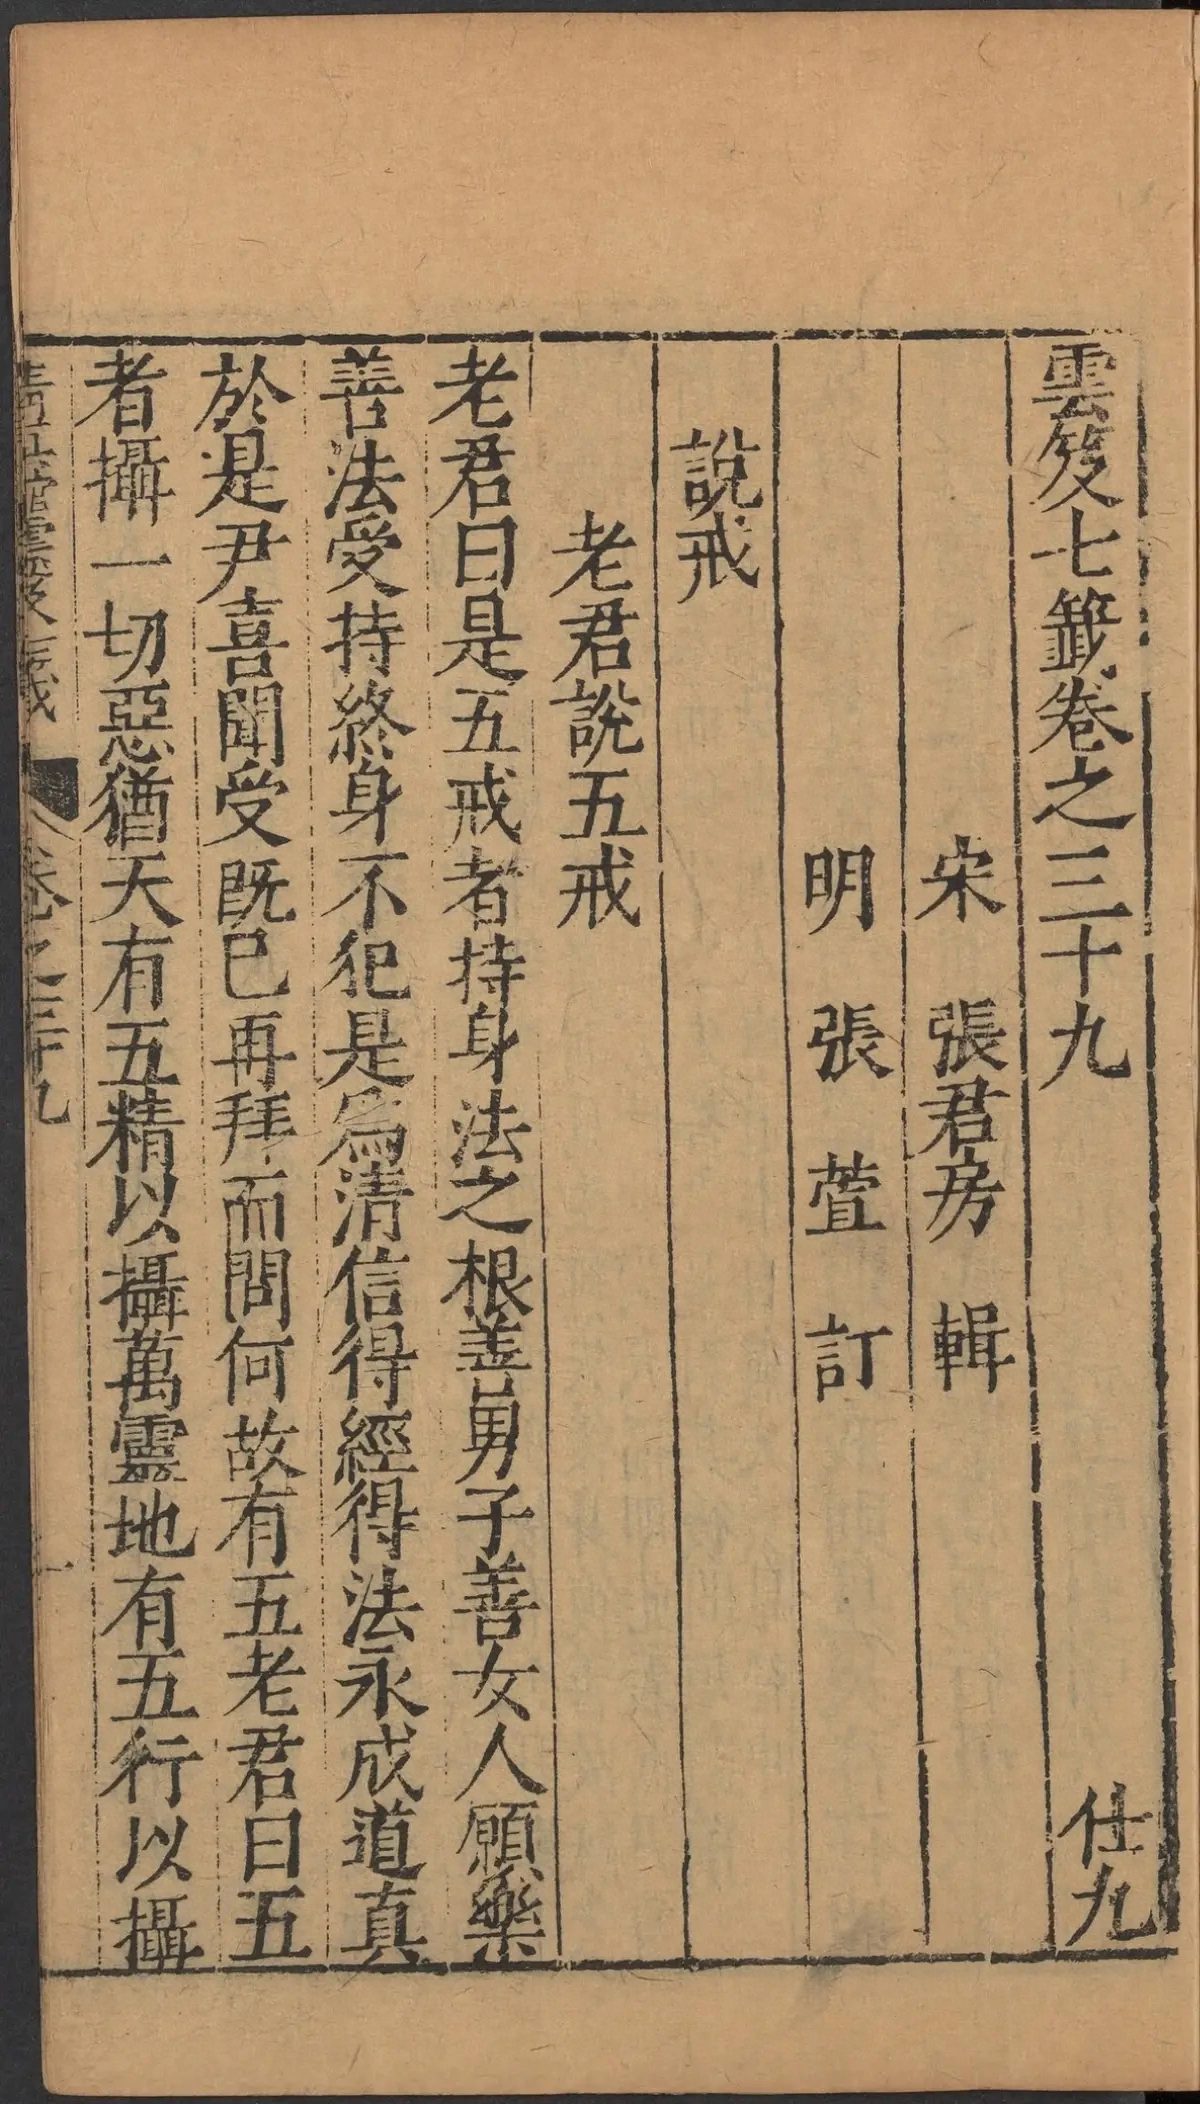 雲笈七籤卷之三十九 仕九
宋 張君房 輯
明 張萱 訂
說戒
老君說五戒
老君曰是五戒者持身法之根善男子善女人願樂
善法受持終身不犯是爲清信得經得法永成道真
於是尹喜聞受旣已再拜而問何故有五老君曰五
者攝一切惡猶天有五精以攝萬靈地有五行以攝
卷之三十九
一